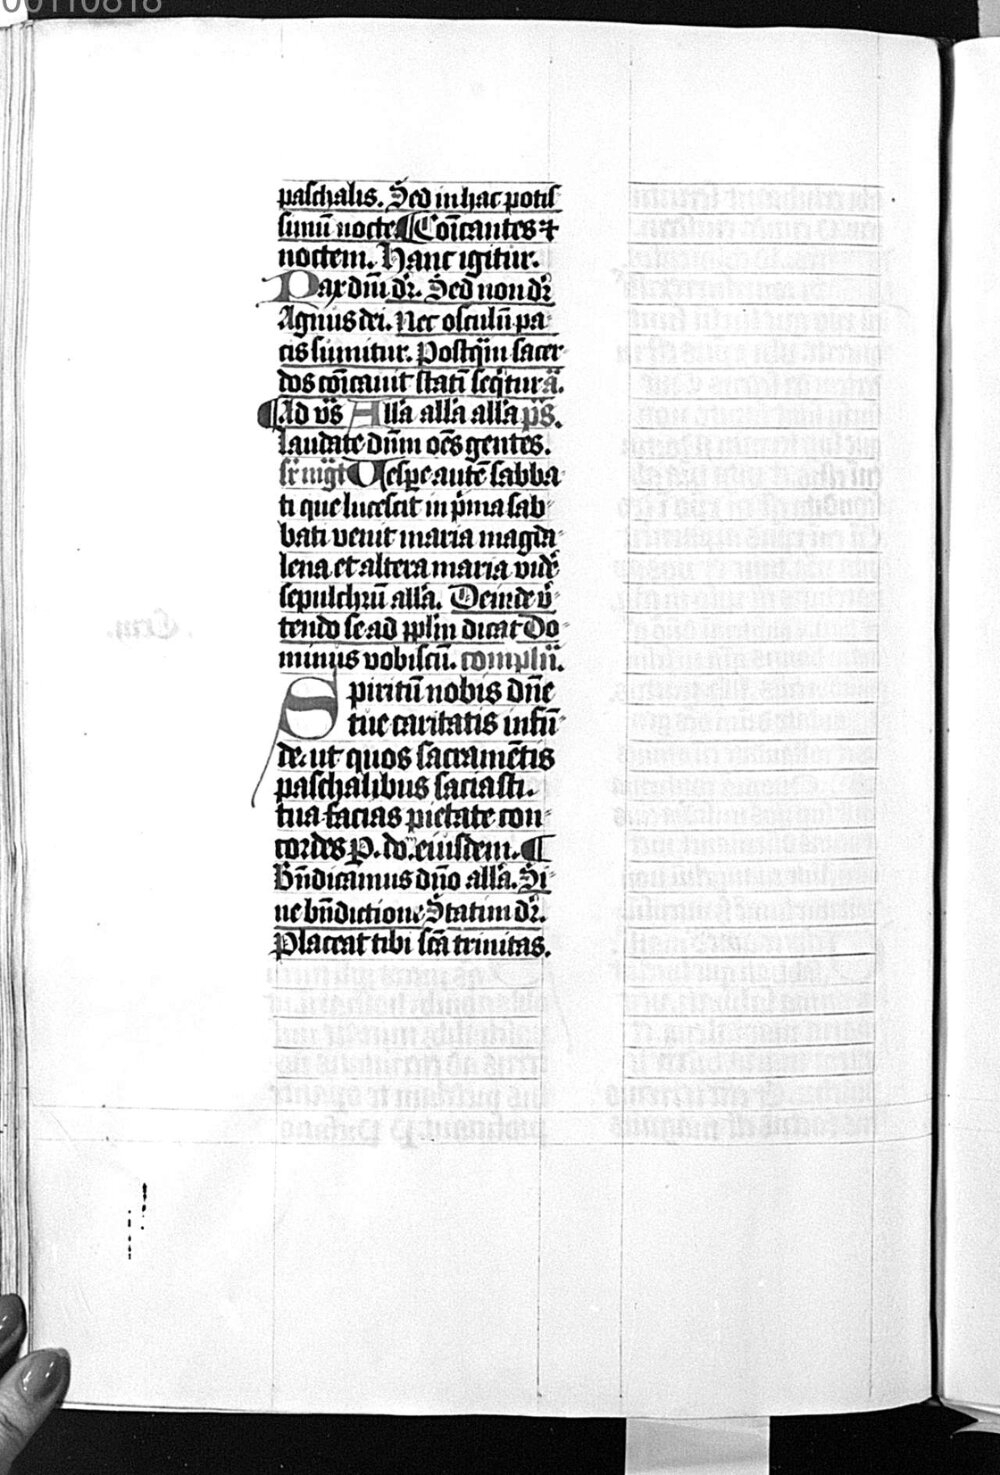 00110818
paschalis. Sed in hac potis
simū nocte ¶ Cōicantes ⁊
noctem. Hanc igitur.
Pax dn̄i dr̄. Sed non dr̄
Agnus dei. Nec osculū pa
cis sumitur. Postq̄m sacer
dos cōicauit statī seq̄tur a.
¶ Ad vs̄ All'a all'a all'a ps̄.
Laudate dn̄m oēs gentes.
Vespe autē sabba
ti que lucescit in p̄ma sab
bati venit maria magda
lena et altera maria vidē
sepulchrū all'a. Deinde v̄
tendo se ad pplm̄ dicat Do
minus vobiscū. complē.
Spiritū nobis dn̄e
tue caritatis infū
de. ut quos sacramētis
paschalibus saciasti.
tua facias pietate con
cordes P. do. eiusdem. ¶
Bn̄dicamus dn̄o all'a. Si
ne bn̄dictione Statim dr̄.
Placeat tibi sc̄a trinitas.